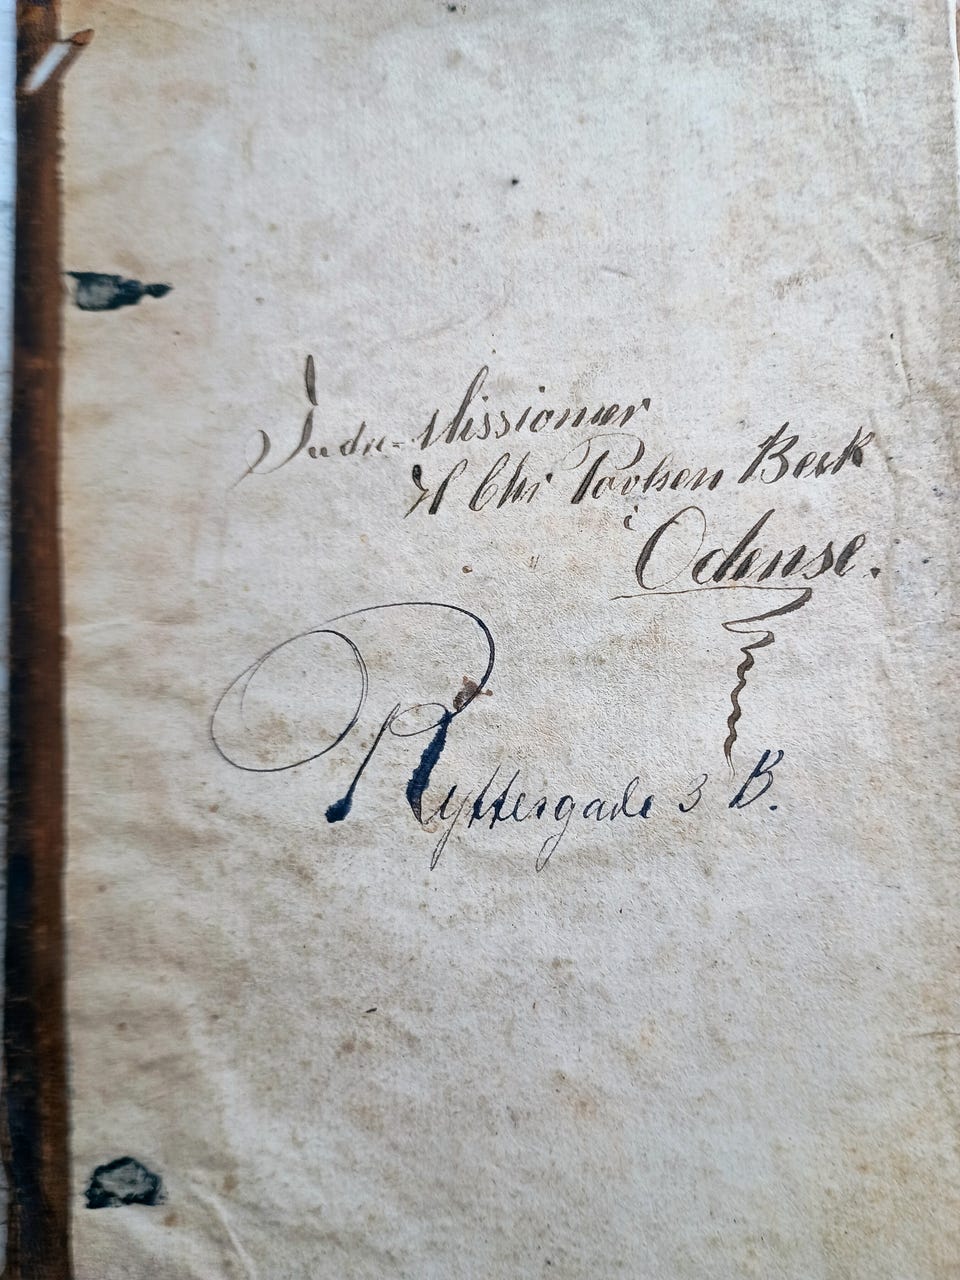 Indre-Missionær
H Chr Povlsen Beck
i Odense.
Ryttergade 3 B.